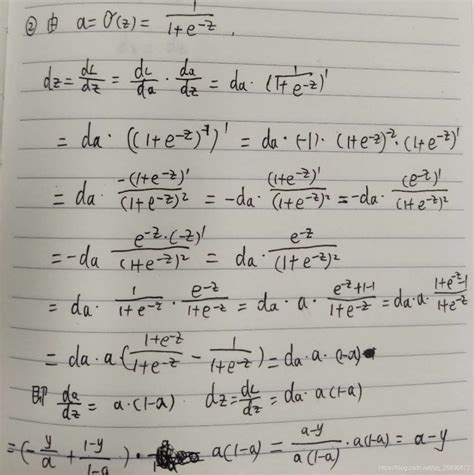 ② 由 a = σ(z) = 1/(1+e^-z)
dz = dL/dz = dL/da · da/dz = da · (1/(1+e^-z))'
= da · ((1+e^-z)^-1)' = da · (-1) · (1+e^-z)^-2 · (1+e^-z)'
= da · -(1+e^-z)'/(1+e^-z)^2 = -da · (1+e^-z)'/(1+e^-z)^2 = -da · (e^-z)'/(1+e^-z)^2
= -da e^-z·(-z)'/(1+e^-z)^2 = da · e^-z/(1+e^-z)^2
= da · 1/(1+e^-z) · e^-z/(1+e^-z) = da · a · (e^-z+1-1)/(1+e^-z) = da·a· (1+e^-z-1)/(1+e^-z)
= da · a ((1+e^-z)/(1+e^-z) - 1/(1+e^-z)) = da · a · (1-a)
即 da/dz = a·(1-a) dz = dL/dz = da · a(1-a)
= (-y/a + (1-y)/(1-a)) · a(1-a) = (a-y)/(a(1-a)) · a(1-a) = a-y